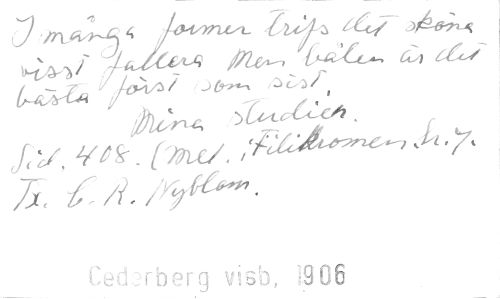 I många former trifs det sköna
visst fallera Men bålen är det
bästa först som sist.
Mina studier.
Sid. 408. (Mel. i Filikromen. N. 7.
Tx. C. R. Nyblom.
Cederberg visb, 1906